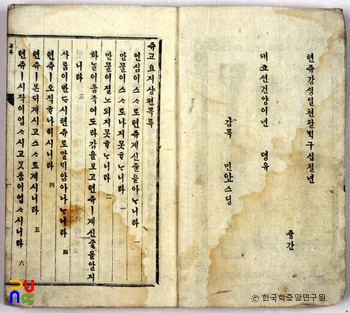 텬쥬강싱일쳔팔ᄇᆡᆨ구십칠년
대죠션건양이년 뎡유 즁간
감목 민아오스딩
쥬교요지샹편목록
인심이스스로텬쥬계신줄을아ᄂᆞ니라 一
만물이스스로나지못ᄒᆞᄂᆞ니라 一
만물이졀노되지못ᄒᆞᄂᆞ니라 二
하ᄂᆞᆯ이움ᄌᆞᆨ여도라감을보고텬쥬ㅣ계신줄을알지
니라 三
사ᄅᆞᆷ이반ᄃᆞ시텬쥬로말ᄆᆡ암아나ᄂᆞ니라 四
텬쥬ㅣ오직ᄒᆞ나히시니라 四
텬쥬ㅣ본ᄃᆡ계시고스스로계시니라 五
텬쥬ㅣ시작이업ᄉᆞ시고ᄆᆞᄎᆞᆷ이업ᄉᆞ시니라 六
ⓒ 한국학중앙연구원